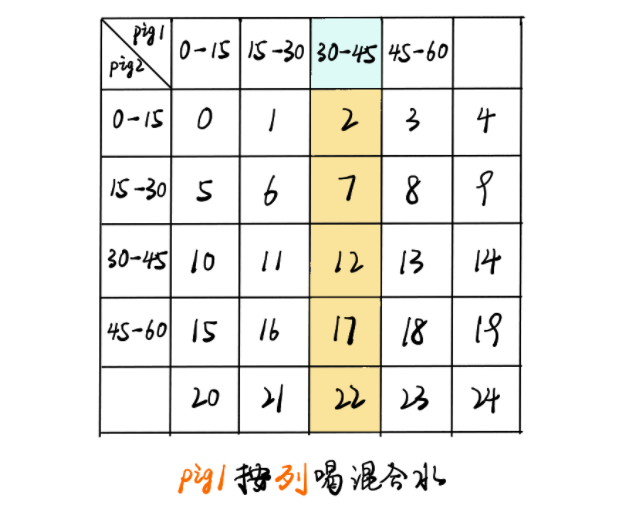 pig1 0-15 15-30 30-45 45-60
pig2
0-15 0 1 2 3 4
15-30 5 6 7 8 9
30-45 10 11 12 13 14
45-60 15 16 17 18 19
20 21 22 23 24
pig1按列喝混合水